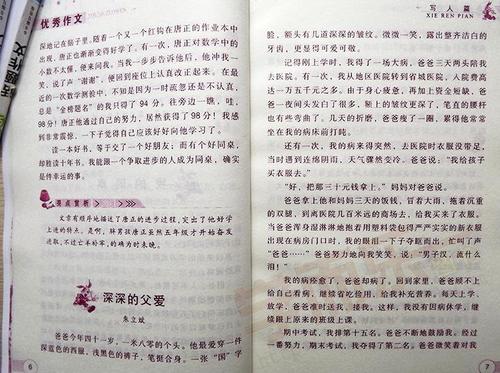 优秀作文
深地记在脑子里。随着一个又一个红钩在唐正的作业本中
出现，唐正也渐渐变得好学了。有一次，唐正对数学中的
小数不太懂，便来问我。当我一步步告诉他后，他冲我一
笑，说了声“谢谢”，便回到座位上认真改正起来。在最
近的一次数学测验中，不知是因为一时疏忽还是不认真，
总是“金榜题名”的我只得了94分。往旁边一瞧，哇，
98分！唐正他通过自己的努力，居然获得了98分！我感
到非常震惊，一下子觉得自己应该好好向他学习了。
读一本好书，等于交了一个好朋友；而有个好同桌，
却胜读十年书。我能跟一个争取进步的人成为同桌，确实
是件幸运的事。
亮点赏析
文章有顺序地描述了唐正的进步过程，突出了他好学
上进的特点。是啊，林男孩唐正虽然五年级才开始奋发
进取，不过亡羊补牢，的确为时未晚。
深深的父爱
朱立斌
爸爸今年四十一岁，一米八零的个头。他最爱穿一件
深蓝色的西服，浅黑色的裤子，笔挺合身。一张“国”字
6
写人篇
XIE REN PIAN
脸，额头有几道深深的皱纹。微微一笑，露出整齐洁白的
牙齿，更显得可爱可敬。
记得刚上学时，我得了一场大病，爸爸三天两头陪我
去医院。有一次，我从地区医院转到省城医院，入院费高
达一万五千元之多。由于身心疲惫，再加上资金短缺，爸
爸一夜间头发白了很多，额上的皱纹更深了，笔直的腰杆
也有些弯曲了。几天的折磨，爸爸瘦了一圈，累得他常常
坐在我的病床前打盹。
还有一次，我的病来得突然，去医院时衣服没带足，
当时遇到连绵阴雨，天气骤然变冷。爸爸说：“我给孩子
买衣服去。”
“好，把那三十元钱拿上。”妈妈对爸爸说。
爸爸拿上他和妈妈三天的饭钱，冒着大雨，拖着沉重
的双腿，到离医院几百米远的商场去，给我买来了衣服。
当爸爸浑身湿淋淋地抱着用塑料袋包得严严实实的新衣服
出现在病房门口时，我的眼泪一下子夺眶而出，忙叫了声
“爸爸……”爸爸努力地向我笑笑，说：“男子汉，流什么
泪！”
我的病痊愈了，爸爸却病了。回到家里，爸爸顾不上
给自己看病，继续省吃俭用，给我补充营养。每天上学、
放学，爸爸准时送我、接我。这样，我没有因病休学，继
续跟上原来的班级上课。
期中考试，我排第十五名。爸爸不断地鼓励我。经过
一番努力，期末考试，我夺得了第二名。爸爸微笑着对我
7